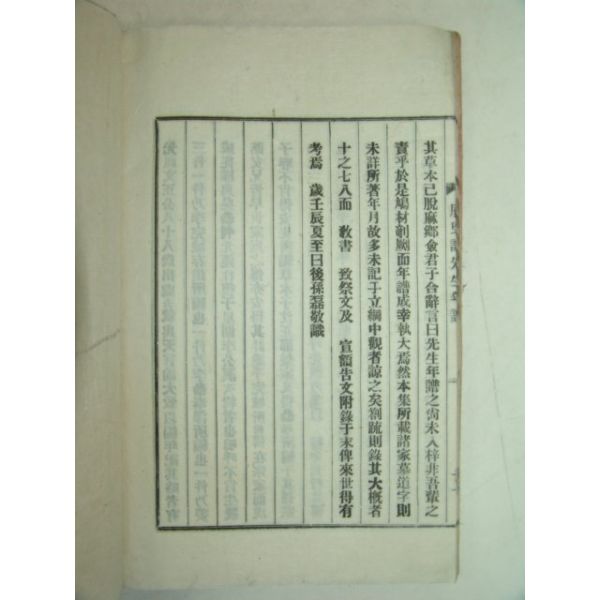 其草本已脫麻鄕僉君子合辭言曰先生年譜之尙未入梓非吾輩之
責乎於是鳩材剞劂而年譜成幸孰大焉然本集所載諸家墓道字則
未詳所著年月故多未記于立綱中觀者諒之矣劄疏則錄其大槪者
十之七八而 敎書 致祭文及 宣額告文附錄于末俾來世得有
考焉 歲壬辰夏至日後孫磊敬識
先生年譜